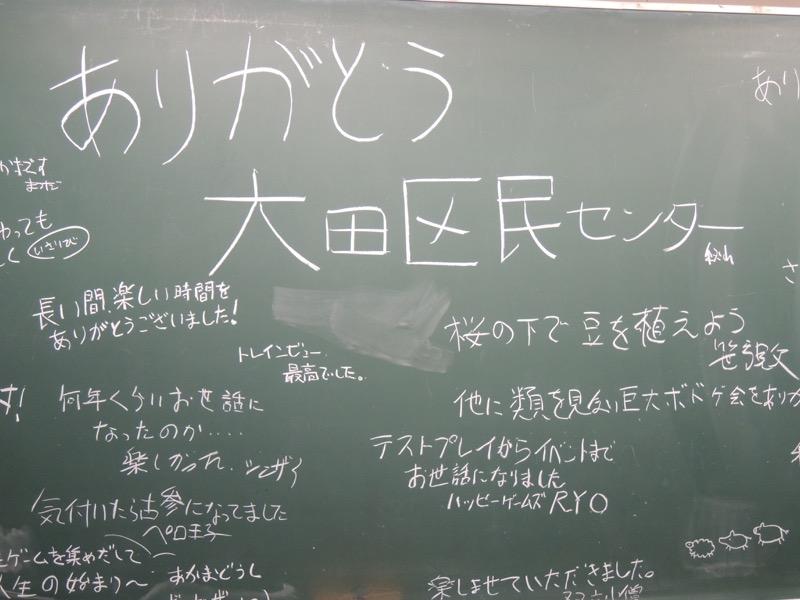 ありがとう
大田区民センター
あり
かまです
わっても
いさりび
長い間、楽しい時間を
ありがとうございました!
トレインビュー
最高でした。
桜の下で豆を植えよう
他に類を見ない巨大ボドゲ会をありが
す!
何年くらいお世話に
なったのか‥‥‥
楽しかった。
テストプレイからイベントまで
お世話になりました
ハッピーゲームズRYO
気付いたら古参になってました
ペロ王子
ゲームを集めだして
人生の始まり〜
あかまどうし
楽しませていただきました。